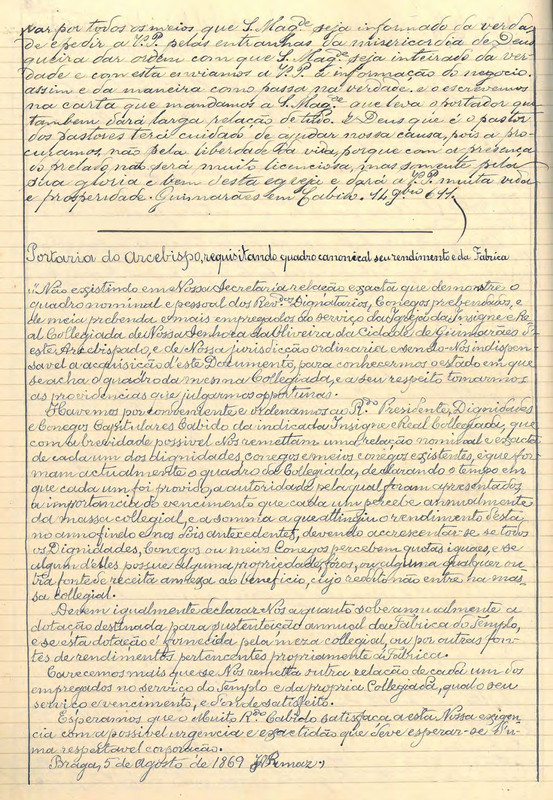 rar por todos os meios, que S. Mag.de seja informado da verda-
de e pedir a V.P. pelas entranhas da misericordia de Deus
queira dar ordem com que S. Mag.de seja inteirado da ver-
dade e com esta enviamos a V.P. a informação do negocio.
assim e da maneira como passa na verdade. e o escrevemos
na carta que mandamos a S. Mag.de que leva o portador que
tambem dará larga relação de tudo. E Deus que é o pastor
dos pastores terá cuidado de ajudar nossa causa, pois a pro-
curamos, não pela liberdade da vida, porque com a presença
do prelado não será muito licenciosa, mas sómente pela
sua gloria e bem desta egreja e dará a V.P. muita vida
e prosperidade. Guimarães em Cabido. 14 9bro 611.
Portaria do Arcebispo, requisitando quadro canonical seu rendimento e da Fabrica
"Não existindo em Nossa Secretaria relação exacta que demonstre o
quadro nominal e pessoal dos Rev.dos Dignatarios, Conegos prebendados, e
de meia prebenda e mais empregados do serviço da Igreja da Insigne e Re-
al Collegiada de Nossa Senhora da Oliveira da Cidade de Guimarães n'
este Arcebispado, e de Nossa jurisdicção ordinaria e sendo-Nos indispen-
savel a acquisição d'este Documento, para conhecermos o estado em que
se acha o quadro da mesma Collegiada, e a seu respeito tomarmos
as providencias que julgarmos opportunas.
Havemos por conveniente e ordenamos ao R.do Presidente, Dignidades
e Conegos Capitulares Cabido da indicada Insigne e Real Collegiada, que
com a brevidade possivel Nos remettam uma relação nominal e exacta
de cada um dos dignidades, conegos e meios conegos existentes, e que for-
mam actualmente o quadro da Collegiada, declarando o tempo em
que cada um foi provido, a autoridade pela qual foram apresentados
a importancia do vencimento que cada um percebe annualmente
da massa collegial, e a somma a que attingiu o rendimento desta
no anno findo e nos dois antecedentes, devendo accrescentar-se se todos
os Dignidades, Conegos ou meios Conegos percebem quotas iguaes, e se
algum delles possue alguma propriedade, foros, ou alguma qualquer ou-
tra fonte de receita annexa ao beneficio, cujo redito não entre na mas-
sa collegial.
Devem igualmente declarar-Nos a quanto sobe annualmente a
dotação destinada para sustentação annual da Fabrica do Templo,
e se esta dotação é fornecida pela meza collegial, ou por outras fon-
tes de rendimentos pertencentes propriamente á Fabrica.
Carecemos mais que se Nos remetta outra relação de cada um dos
empregados no serviço do Templo e da propria Collegiada, qual o seu
serviço e vencimento, e d'onde satisfeito.
Esperamos que o Muito R.do Cabido satisfaça a esta Nossa exigen-
cia com a possivel urgencia e exactidão que deve esperar-se d'u-
ma respeitavel corporação.
Braga, 5 de Agosto de 1869 Primaz."